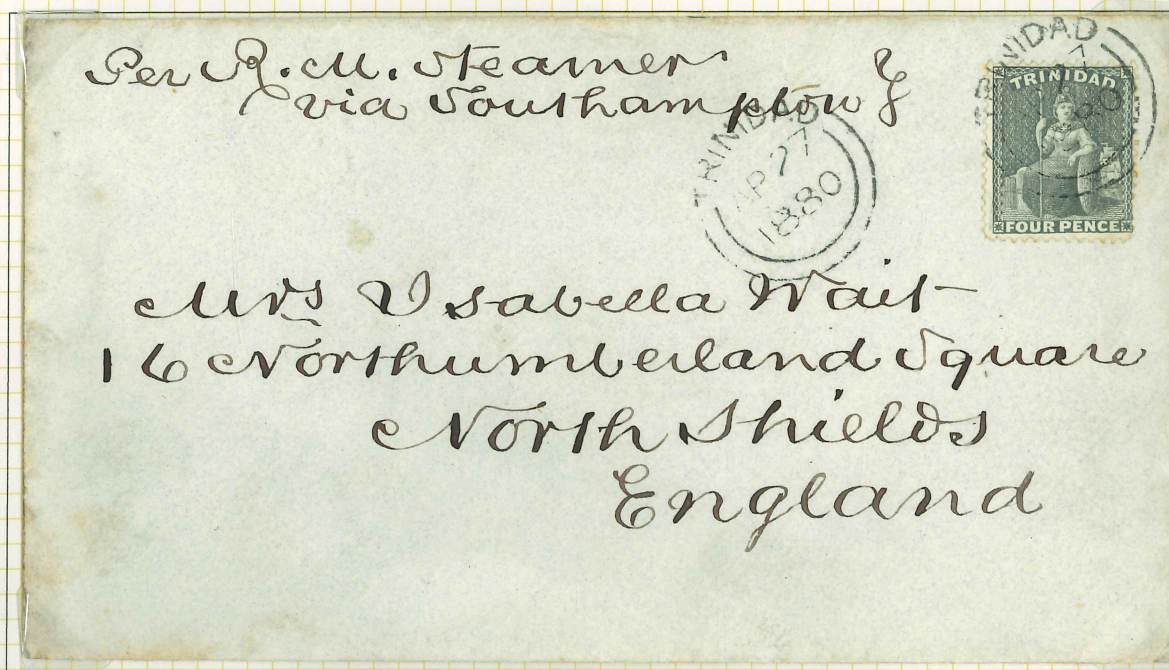 Per R. M. Steamer
via Southampton
TRINIDAD
AP 27
1880
TRINIDAD
TRINIDAD
FOUR PENCE
Mrs Isabella Wait
16 Northumberland Square
North Shields
England